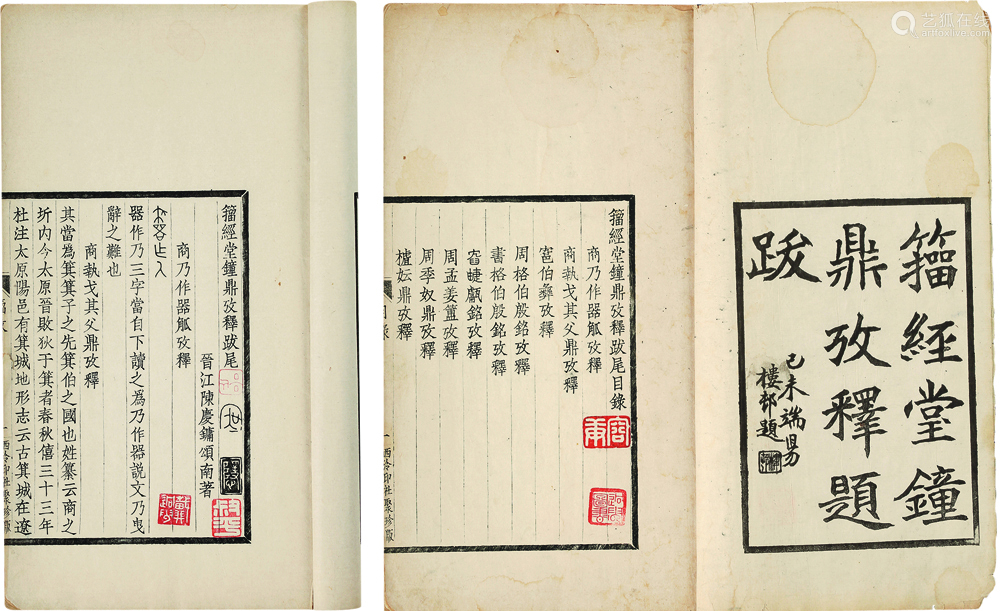 籀經堂鐘
鼎攷釋題
跋
己未端昜
樓邨題
籀經堂鐘鼎攷釋跋尾目錄
商乃作器觚攷釋
商執戈其父鼎攷釋
周格伯𣪘銘攷釋
書格伯𣪘銘攷釋
周孟姜簠攷釋
周季奴鼎攷釋
櫨妘鼎攷釋
西泠印社聚珍版
籀經堂鐘鼎攷釋跋尾
晉江陳慶鏞頌南著
商乃作器觚攷釋
器作乃三字當自下讀之為乃作器說文乃曳
辭之難也
商執戈其父鼎攷釋
其當為箕箕子之先箕伯之國也姓纂云商之
圻內今太原晉敗狄于箕者春秋僖三十三年
杜注太原陽邑有箕城地形志云古箕城在遼
一
西泠印社聚珍版
艺狐在线
artfoxlive.com